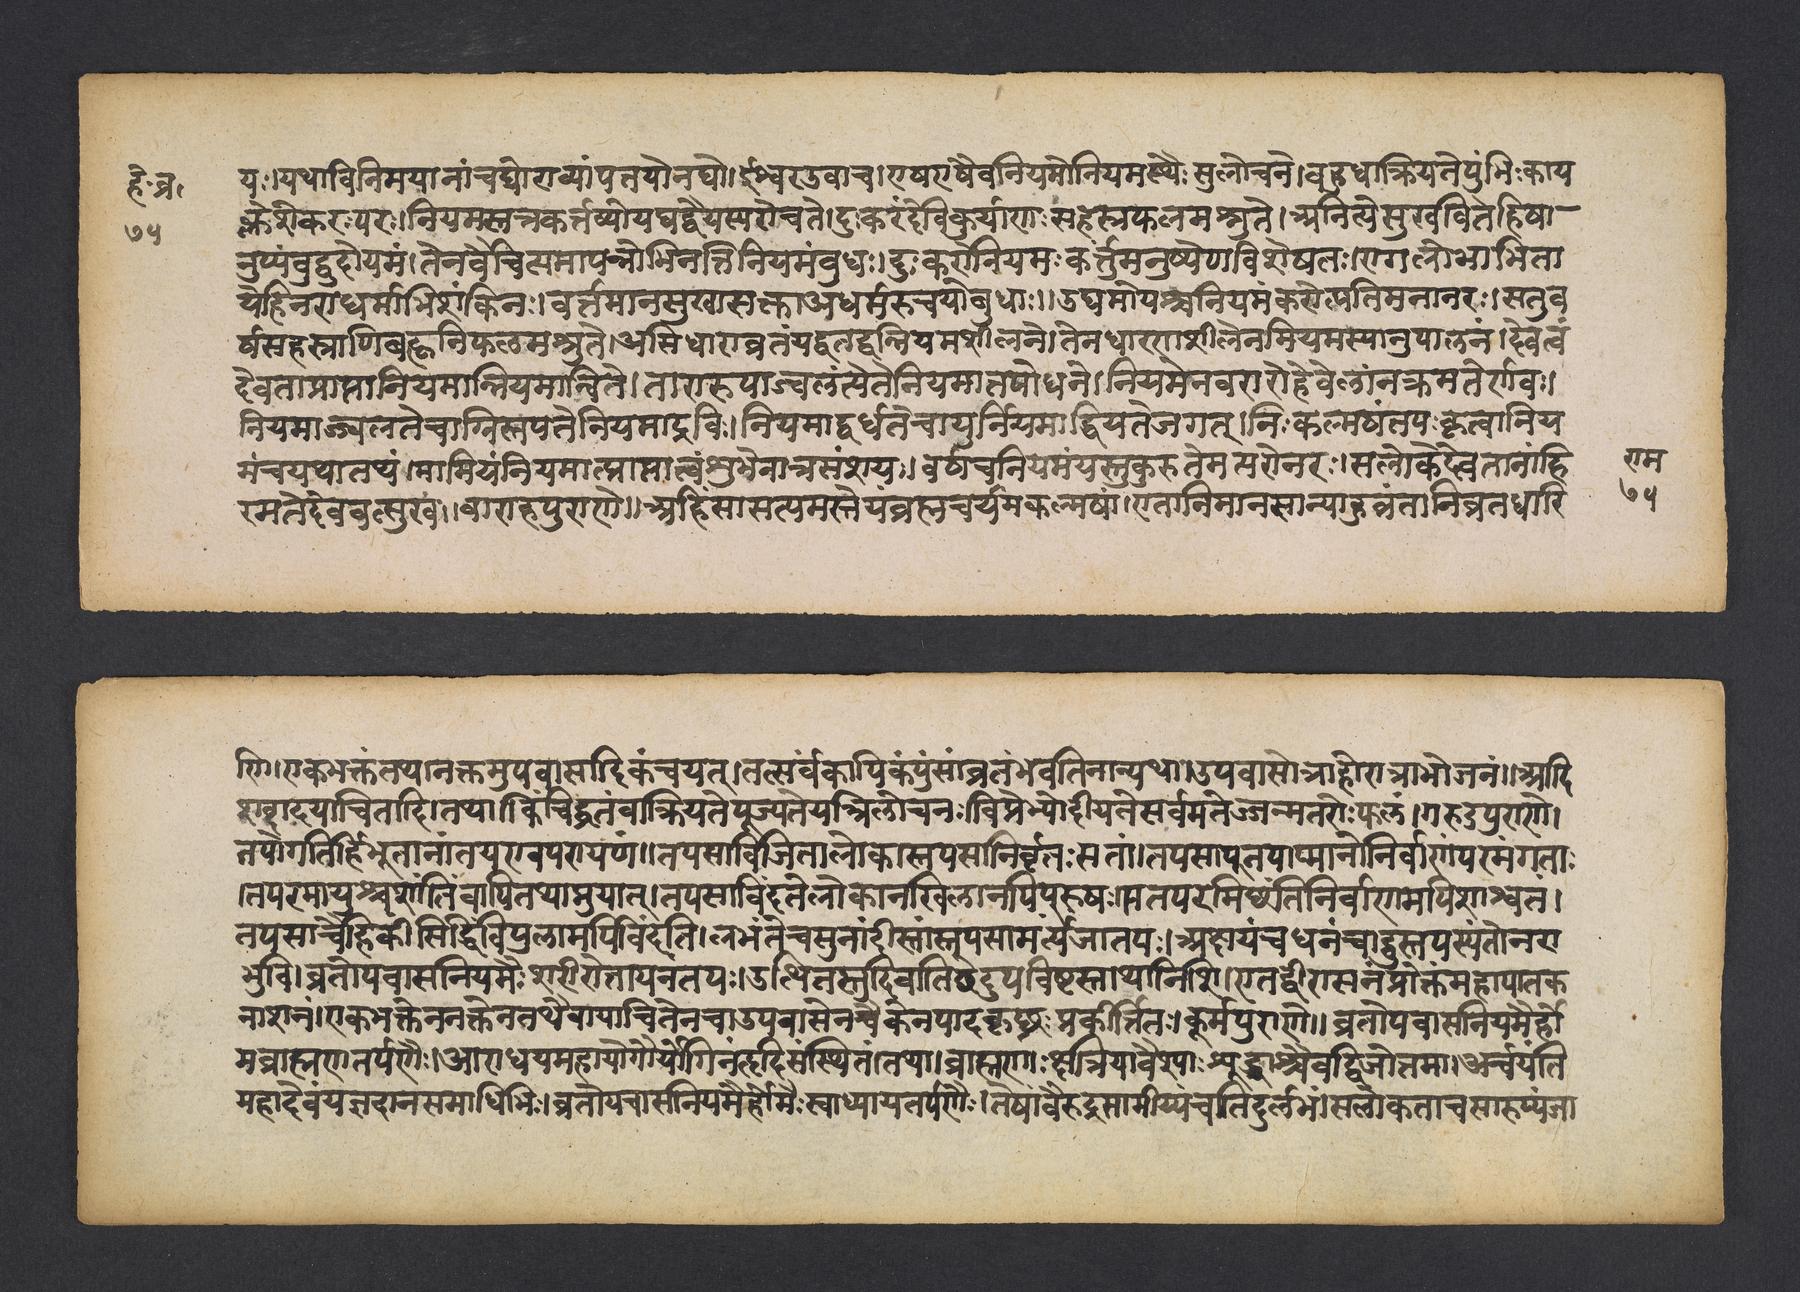 हे.व्र.
७५
यः।यथाविनिमयानांचद्योराव्यांपतयोनघौ।ईश्वरउवाच।एषएषैवनियमोनियमस्यैःसुलोचने।बहुधाक्रियतेपुंभिःकाय
क्लेशीकरःपरः।नियमस्तत्रकर्त्तव्योयघद्वैयस्यरोचते।दुःकरंदेविकुर्याणःसहस्रफलमश्नुते।अनित्येसुखवितेहिषा
नुष्यंबुद्बुदोयमं।तेनवैचिसमापन्नोभिनत्तिनियमंबुधः।दुःकरोनियमःकर्त्तुमनुष्येणविशेषतः।रागलोभाभिता
येहिनराधर्माभिशंकिनः।वर्त्तमानसुखासक्ताअधर्मरुचयोबुधाः।।उघमोयश्चनियमंकरोत्प्रतिमनानरः।सतुव
र्षसहस्राणिबहूनिफलमश्नुते।असिधाराव्रतंयद्वतद्वन्नियमशीलने।तेनधारणाशीलेनमियमस्यानुपालनं।देवत्वं
देवताप्राप्तानियमान्नियमान्विते।तारारूपाज्वलंत्येतेनियमातपोधने।नियमेनवरारोहेवेलांनक्रमतेर्णवः।
नियमाज्ज्वलतेचाग्निस्तपतेनियमाद्रविः।नियमाद्वर्धतेवायुर्नियमाद्ध्रियतेजगत्।निःकल्मषंतपःकृत्वानिय
मंचयथातथं।मामियंनियमात्प्राप्तात्वंशुभेनात्रसंशयः।वेर्षाचनियमंयस्तुकुरुतेमत्परोनरः।सलोकेदेवतानांहि
रमतेदेववत्सुखं।।वाराहपुराणे।।अहिंसासत्यमस्तेयंब्रह्मचर्यमकल्मषां।एतानिमानसान्याहुव्रंतानिव्रतधारि
राम
७५
णि।एकभक्तंतथानक्तमुपवासादिकंचयत्।तत्सर्वंकापिकंपुंसांव्रतंभवतिनान्यथा।।उपवासोत्राहोरात्राभोजनं।।आदि
शब्दादयाचितादि।तथा।किंचिद्व्रतंवाक्रियतेपूज्यतेयत्त्रिलोचनः।विप्रेभ्योदीयतेसर्वमतेज्जन्मतरोःफलं।गरुडपुराणे।
तपोगतिर्हिभूतानांतयएवपरायणं।।तपसाविजितालोकास्तपसानिर्वृतःसतां।तपसापूतपाप्मानोनिर्वाणंपरमंगताः
।तपरमायुश्चशांतिंवापितथाप्नुयात्।तपसाविंदतेलोकानखिलानपिपुरुषः।मतपरेमिष्ठंतिनिर्वाणमपिशाश्वतं।
तपसाचैहिकींसिद्धिंविपुलामपिविंदति।लभंतेचसुतांदीस्तांस्तपसामर्त्यजातपः।अक्षयंचधनंचाहुस्तपस्यंतोनरा
भुवि।व्रतोपवासनियमैःशरीरोत्तायनंतपः।उत्थितस्तुदिवातिष्ठदुपविष्टस्तथानिशि।एतद्वीरासनंप्रोक्तंमहापातक
नाशनं।एकभक्तेननक्तेनतथैवायाचितेनच।उपवासेनश्चैकेनपादकृछ्रःप्रकीर्त्तितः।कूर्मपुराणे।।व्रतोपवासनियमैर्हो
मब्राह्मणतर्पणैः।आराधयमहायोगैर्योगिनंहृदिसंस्थितं।तथा।ब्राह्मणाःक्षत्रियावैश्याःशूद्राश्चैवद्विजोत्तमा।अर्चयंति
महादेवंयज्ञदानसमाधिभिः।व्रतोपवासनियमैर्होमैःस्वाध्यायतर्पणैः।तेषांवैरुद्रसामीप्यंचातिदुर्लभं।सलोकताचसारूप्यंजा